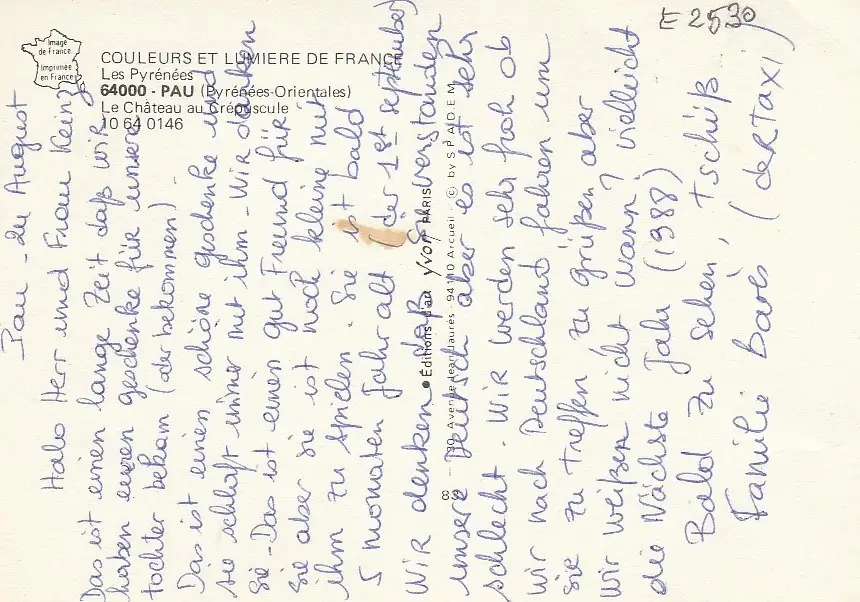 Image
de France
Imprimée
en France
COULEURS ET LUMIERE DE FRANCE
Les Pyrénées
64000 - PAU (Pyrénées-Orientales)
Le Château au Crépuscule
10 64 0146
E 2530
Pau - den August
Halo Herr und Frau Keinz
Das ist einen lange Zeit daß wir
haben euren geschenke für unsere
tochter bekam (oder bekommen) -
Das ist einen schöne geschenke und
sie schlaft immer mit ihm - Wir danken
Sie - Das ist einen gut Freund für
Sie aber sie ist noch kleine mit
ihm zu spielen. Sie ist bald
5 monaten Jahr alt (der 1st september)
Wir denken daß Sie verstanden
unsere Deutsch aber es ist sehr
schlecht. Wir werden sehr froh ob
wir nach Deutschland fahren um
sie zu treffen zu grüßen aber
wir weißen nicht wann? vielleicht
die Nächste Jahr (1988)
Bald zu sehen, tschüß
Familie Barès (der Taxi)
● Éditions d'art yvon PARIS
30, Avenue Jean-Jaurès - 94110 Arcueil - © by S P A D E M
83